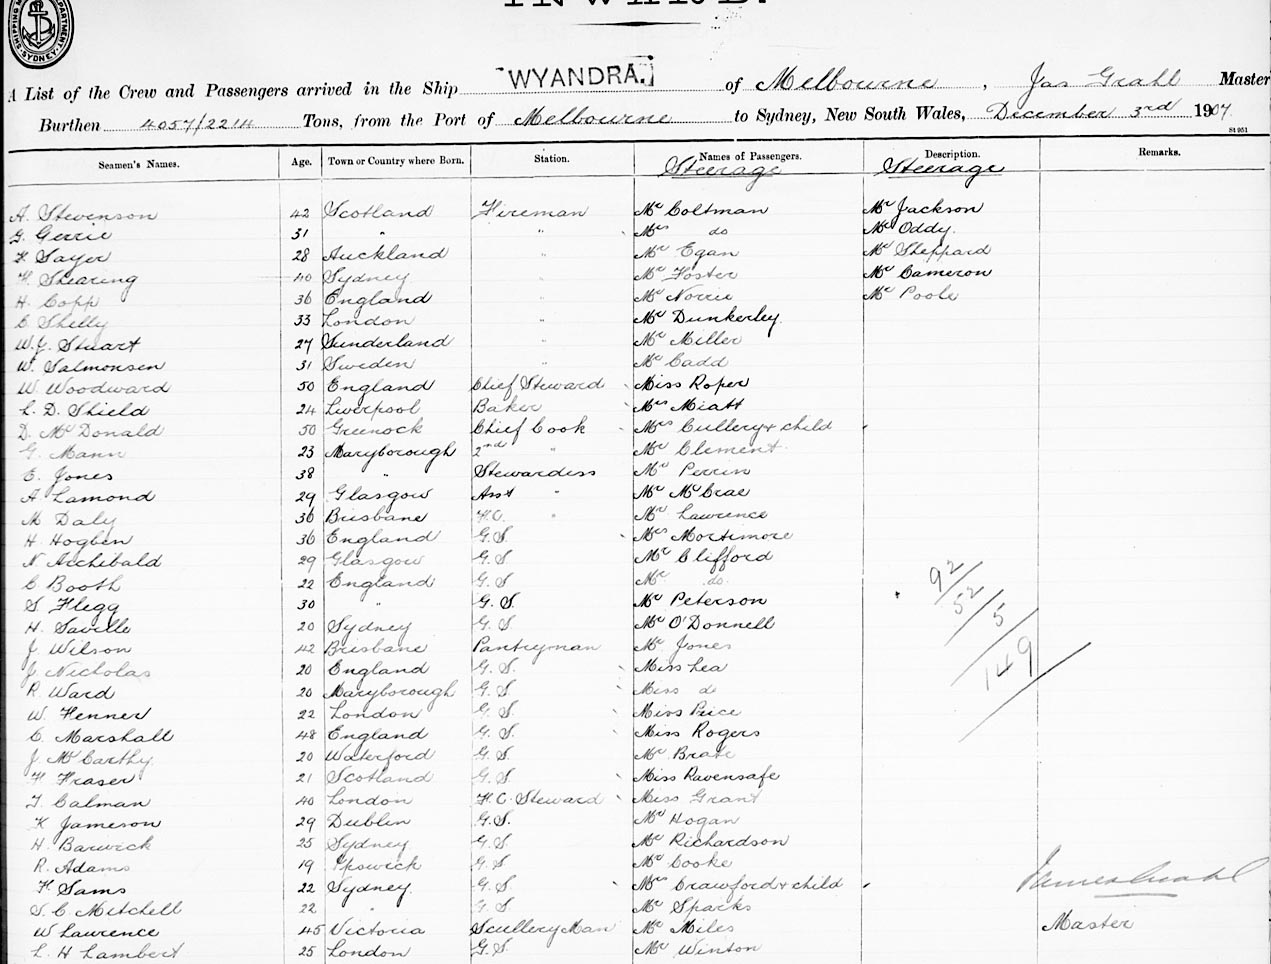 SHIPPING M DEPARTMENT SYDNEY
INWARD.
A List of the Crew and Passengers arrived in the Ship WYANDRA. of Melbourne, Jas Grahl Master
Burthen 4057/2214 Tons, from the Port of Melbourne to Sydney, New South Wales, December 3rd 1907.
St 951
Seamen's Names. Age. Town or Country where Born. Station. Names of Passengers. Description. Remarks.
Steerage Steerage
A. Stevenson 42 Scotland Fireman Mr Coltman Mr Jackson
G. Gerrie 31 " " Mrs do Mr Oddy
F. Sayer 28 Auckland " Mr Egan Mr Sheppard
F. Shearing 40 Sydney " Mr Foster Mr Cameron
H. Copp 36 England " Mr Norrie Mr Poole
C. Shelly 33 London " Mr Dunkerley
W. J. Stuart 27 Sunderland " Mr Miller
W. Salmonsen 31 Sweden " Mr Cadd
W. Woodward 50 England Chief Steward Miss Roper
L. D. Shield 24 Liverpool Baker Mrs Miatt
D. McDonald 50 Greenock Chief Cook Mrs Cullery & child
G. Mann 23 Maryborough 2nd " Mr Clement
E. Jones 38 " Stewardess Mr Perrin
A Lamond 29 Glasgow Asst " Mr McCrae
M Daly 36 Brisbane F.C. " Mr Lawrence
H Hogben 36 England G.S. Mrs Mortimore
N. Archibald 29 Glasgow G.S. Mr Clifford
C Booth 22 England G.S Mr do
S Flegg 30 " G.S. Mr Peterson 92
H. Saville 20 Sydney G.S Mr O'Donnell 52
J. Wilson 42 Brisbane Pantryman Mr Jones 5
J. Nicholas 20 England G.S. Miss Lea 149
R. Ward 20 Maryborough G.S. Miss do
W. Fenner 22 London G.S. Miss Price
C. Marshall 48 England G.S. Miss Rogers
J. McCarthy 20 Waterford G.S. Mr Brate
F Fraser 21 Scotland G.S Miss Ravensafe
T. Calman 40 London F.C. Steward Miss Grant
K Jameson 29 Dublin G.S. Mr Hogan
H. Barwick 25 Sydney G.S Mr Richardson
R. Adams 19 Ipswich G.S Mr Cooke
F. Sams 22 Sydney G.S Mrs Crawford & child James Grahl
S. C. Mitchell 22 " G.S Mr Sparks
W Lawrence 45 Victoria Scullery Man Mr Miles Master
L. H Lambert 25 London G.S. Mr Winton